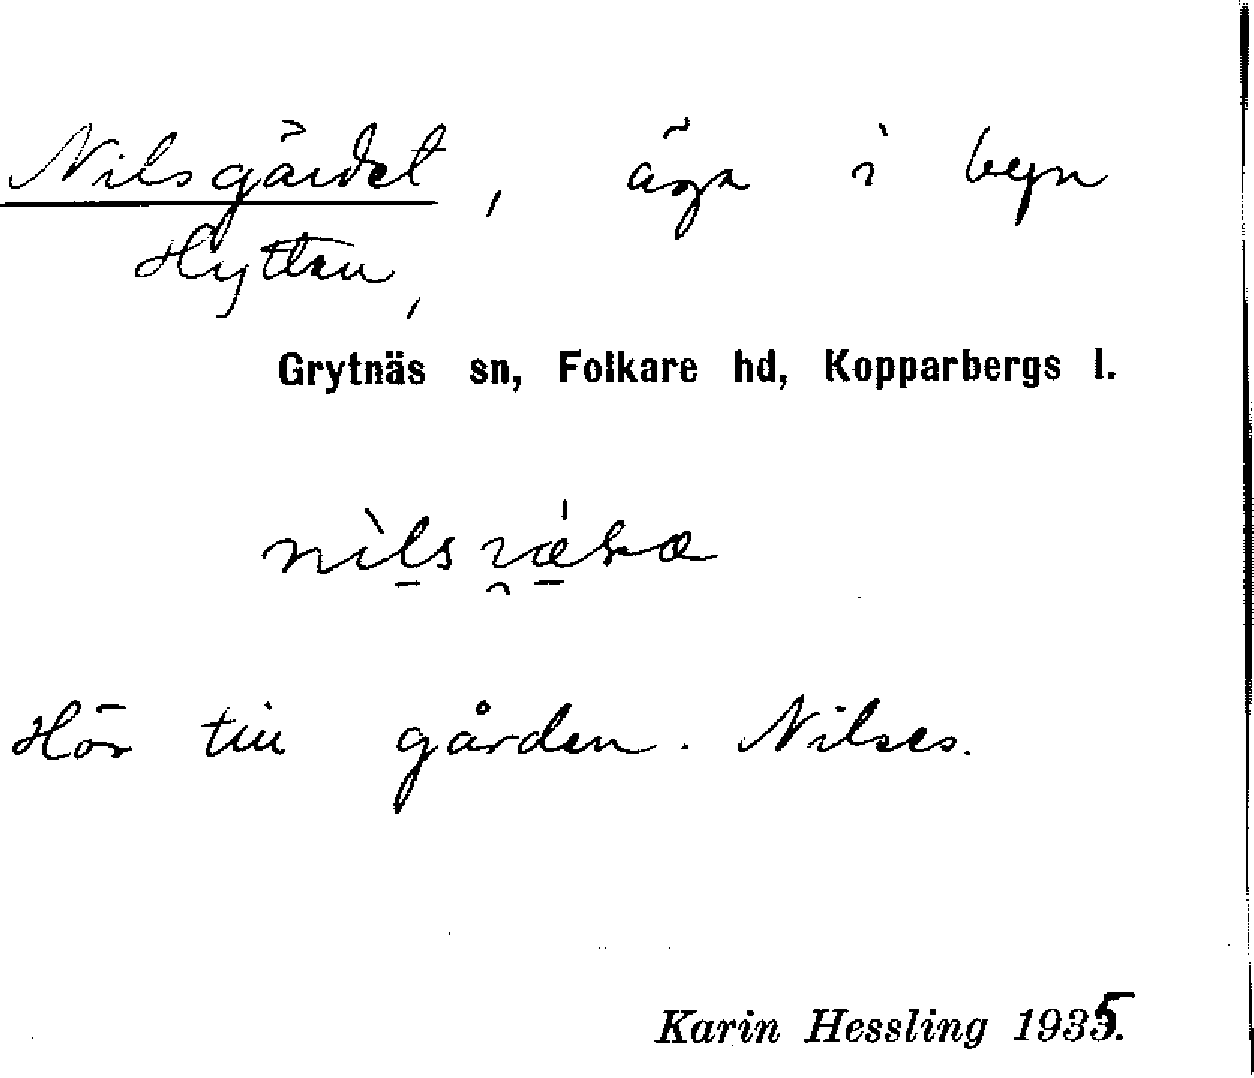 Nilsgärdet, äga i byn
Hyttan,
Grytnäs sn, Folkare hd, Kopparbergs l.
Hör till gården Nilses.
Karin Hessling 1935.